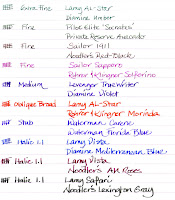 Extra Fine Lamy Al-Star
Diamine Umber
Fine Pilot Elite "Socrates"
Private Reserve Avocado
Fine Sailor 1911
Noodler's Red-Black
Fine Sailor Sapporo
Rohrer & Klingner Solferino
Medium Levenger True Writer
Diamine Violet
Oblique Broad Lamy Al-Star
Rohrer & Klingner Morinda
Stub Waterman Carène
Waterman Florida Blue
Italic 1.1 Lamy Vista
Diamine Mediterranean Blue
Italic 1.1 Lamy Vista
Noodler's
Italic 1.1 Lamy Safari
Noodler's Lexington Gray